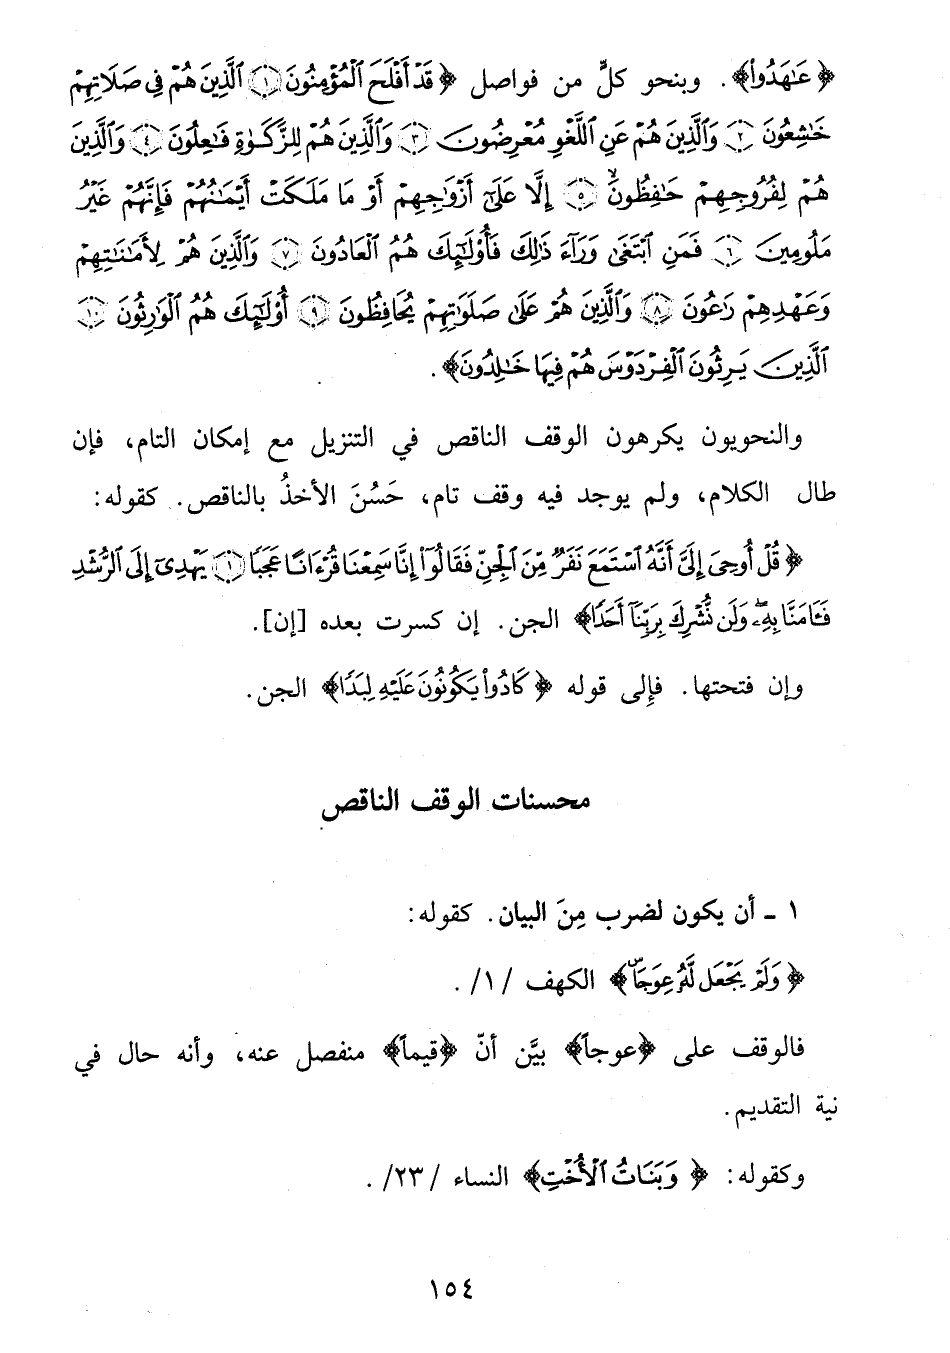 ﴿عَٰهَدُوا۟﴾. وبنحو كلٍّ من فواصل ﴿قَدْ أَفْلَحَ ٱلْمُؤْمِنُونَ ١ ٱلَّذِينَ هُمْ فِى صَلَاتِهِمْ
خَٰشِعُونَ ٢ وَٱلَّذِينَ هُمْ عَنِ ٱللَّغْوِ مُعْرِضُونَ ٣ وَٱلَّذِينَ هُمْ لِلزَّكَوٰةِ فَٰعِلُونَ ٤ وَٱلَّذِينَ
هُمْ لِفُرُوجِهِمْ حَٰفِظُونَ ٥ إِلَّا عَلَىٰٓ أَزْوَٰجِهِمْ أَوْ مَا مَلَكَتْ أَيْمَٰنُهُمْ فَإِنَّهُمْ غَيْرُ
مَلُومِينَ ٦ فَمَنِ ٱبْتَغَىٰ وَرَآءَ ذَٰلِكَ فَأُو۟لَٰٓئِكَ هُمُ ٱلْعَادُونَ ٧ وَٱلَّذِينَ هُمْ لِأَمَٰنَٰتِهِمْ
وَعَهْدِهِمْ رَٰعُونَ ٨ وَٱلَّذِينَ هُمْ عَلَىٰ صَلَوَٰتِهِمْ يُحَافِظُونَ ٩ أُو۟لَٰٓئِكَ هُمُ ٱلْوَٰرِثُونَ ١٠
ٱلَّذِينَ يَرِثُونَ ٱلْفِرْدَوْسَ هُمْ فِيهَا خَٰلِدُونَ﴾.
والنحويون يكرهون الوقف الناقص في التنزيل مع إمكان التام، فإن
طال الكلام، ولم يوجد فيه وقف تام، حَسُنَ الأخذُ بالناقص. كقوله:
﴿قُلْ أُوحِىَ إِلَىَّ أَنَّهُ ٱسْتَمَعَ نَفَرٌ مِّنَ ٱلْجِنِّ فَقَالُوٓا۟ إِنَّا سَمِعْنَا قُرْءَانًا عَجَبًا ١ يَهْدِىٓ إِلَى ٱلرُّشْدِ
فَـَٔامَنَّا بِهِۦ وَلَن نُّشْرِكَ بِرَبِّنَآ أَحَدًا﴾ الجن. إن كسرت بعده [إن].
وإن فتحتها. فإلى قوله ﴿كَادُوا۟ يَكُونُونَ عَلَيْهِ لِبَدًا﴾ الجن.
محسنات الوقف الناقص
١ - أن يكون لضرب مِنَ البيان. كقوله:
﴿وَلَمْ يَجْعَل لَّهُۥ عِوَجَاۜ﴾ الكهف /١/.
فالوقف على ﴿عوجاً﴾ بيَّن أنّ ﴿قيماً﴾ منفصل عنه، وأنه حال في
نية التقديم.
وكقوله: ﴿وَبَنَاتُ ٱلْأُخْتِ﴾ النساء /٢٣/.
١٥٤